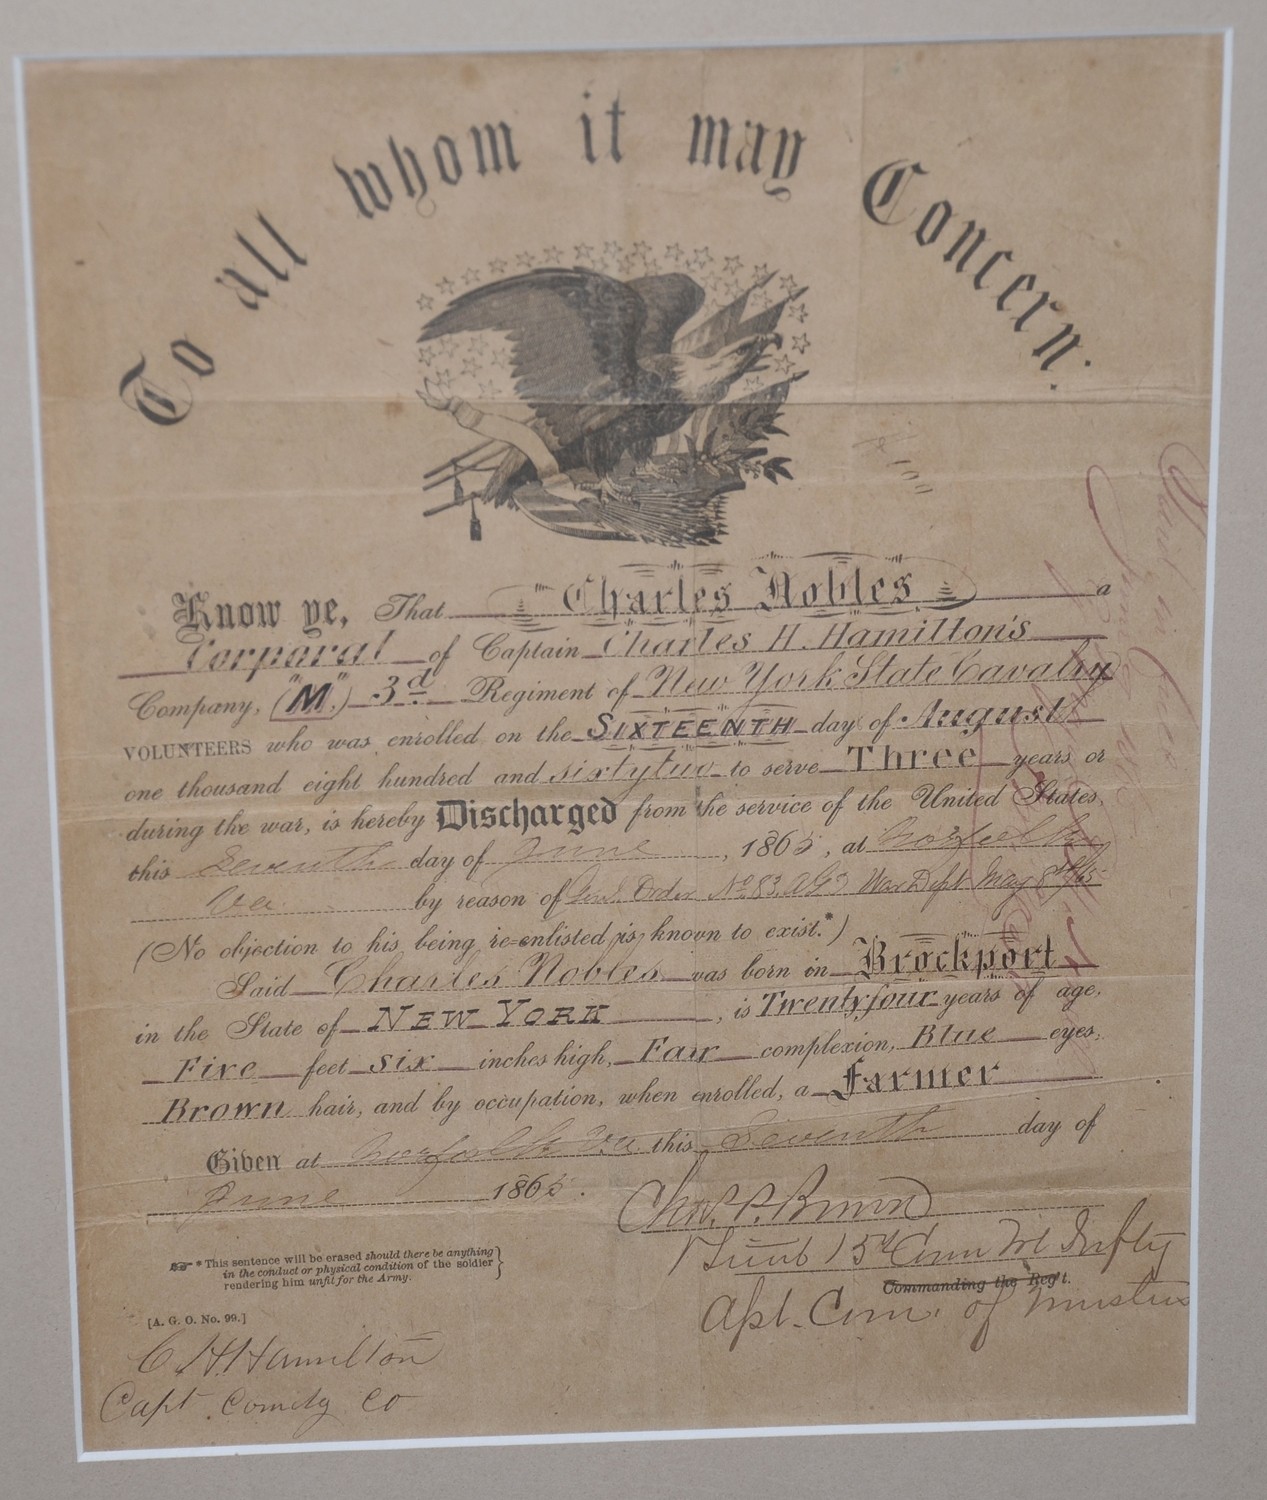 To all whom it may Concern:
$100
Know ye, That Charles Nobles a
Corporal of Captain Charles H. Hamilton's
Company, ("M".) 3d. Regiment of New York State Cavalry
VOLUNTEERS who was enrolled on the SIXTEENTH day of August
one thousand eight hundred and sixtytwo to serve Three years or
during the war, is hereby Discharged from the service of the United States,
this Seventh day of June, 1865, at Norfolk
Va by reason of Genl. Order No. 83. AGO War Dept. May 8th/65
(No objection to his being re-enlisted is known to exist.*)
Said Charles Nobles was born in Brockport
in the State of NEW YORK, is Twentyfour years of age,
Five feet six inches high, Fair complexion, Blue eyes,
Brown hair, and by occupation, when enrolled, a Farmer
Given at Norfolk Va this Seventh day of
June 1865.
Chas. P. Brown
1 Lieut 15th Conn Vol Infty
Commanding the Reg't.
Apt. Com. of Musters
☞ * This sentence will be erased should there be anything
in the conduct or physical condition of the soldier
rendering him unfit for the Army.
[A. G. O. No. 99.]
C H Hamilton
Capt Comdg Co